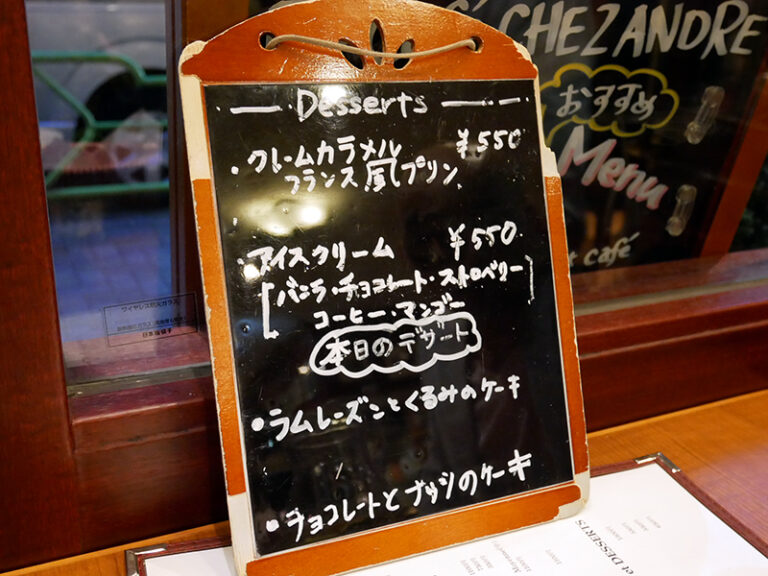 Desserts
・クレームカラメル ¥550
フランス風プリン
・アイスクリーム ¥550
[バニラ・チョコレート・ストロベリー
コーヒー・マンゴー]
本日のデザート
・ラムレーズンとくるみのケーキ
・チョコレートとナッツのケーキ
CHEZ ANDRE
おすすめ
Menu
café
et DESSERTS